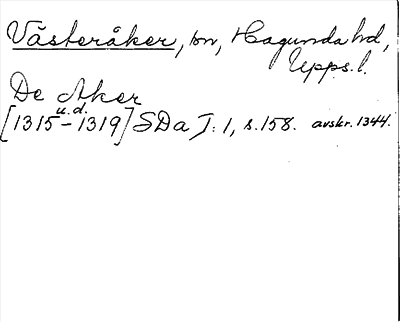 Västeråker, sn, Hagunda hd,
Upps. l.
De Aker
u.d.
[1315-1319] SDa I: 1, s. 158. avskr. 1344.